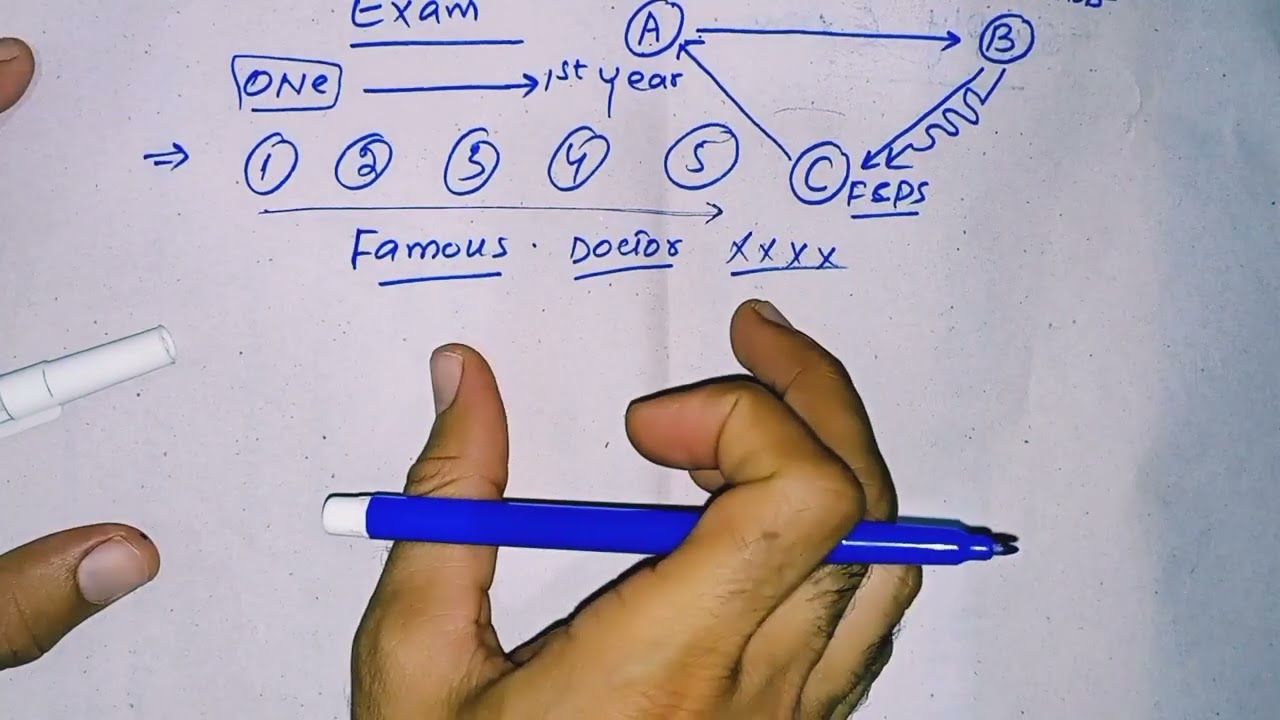 Exam
ONe 1st year
A B
⇒ 1 2 3 4 5
C FSPS
Famous . Doctor xxxx